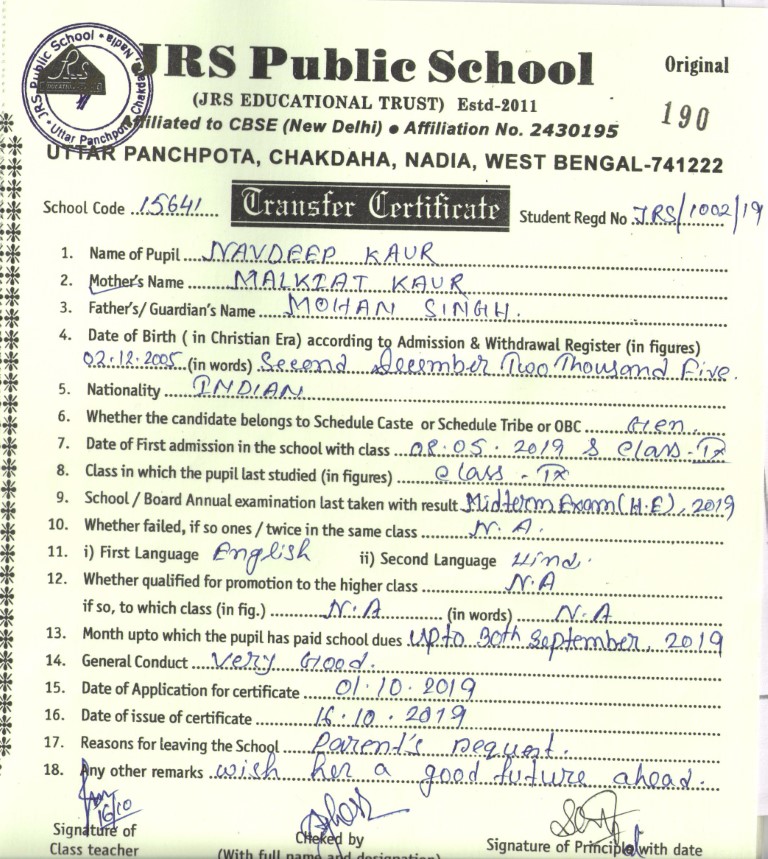 JRS Public School
Original
(JRS EDUCATIONAL TRUST) Estd-2011
190
Affiliated to CBSE (New Delhi) ● Affiliation No. 2430195
JRS Public School • Uttar Panchpota, Chakdaha, Nadia •
UTTAR PANCHPOTA, CHAKDAHA, NADIA, WEST BENGAL-741222
School Code 15641 Transfer Certificate Student Regd No JRS/1002/19
1. Name of Pupil NAVDEEP KAUR
2. Mother's Name MALKIAT KAUR
3. Father's/ Guardian's Name MOHAN SINGH.
4. Date of Birth ( in Christian Era) according to Admission & Withdrawal Register (in figures)
02.12.2005 (in words) Second December Two Thousand Five.
5. Nationality INDIAN
6. Whether the candidate belongs to Schedule Caste or Schedule Tribe or OBC Gen.
7. Date of First admission in the school with class 08.05.2019 & Class-IX
8. Class in which the pupil last studied (in figures) Class-IX
9. School / Board Annual examination last taken with result Midterm Exam(H.E), 2019
10. Whether failed, if so ones / twice in the same class N.A.
11. i) First Language English ii) Second Language Hind.
12. Whether qualified for promotion to the higher class N.A
if so, to which class (in fig.) N.A (in words) N.A
13. Month upto which the pupil has paid school dues upto 30th September, 2019
14. General Conduct Very Good.
15. Date of Application for certificate 01.10.2019
16. Date of issue of certificate 16.10.2019
17. Reasons for leaving the School Parent's Request.
18. Any other remarks wish her a good future ahead.
16/10
Signature of Cheked by Signature of Principal with date
Class teacher (With full name and designation)